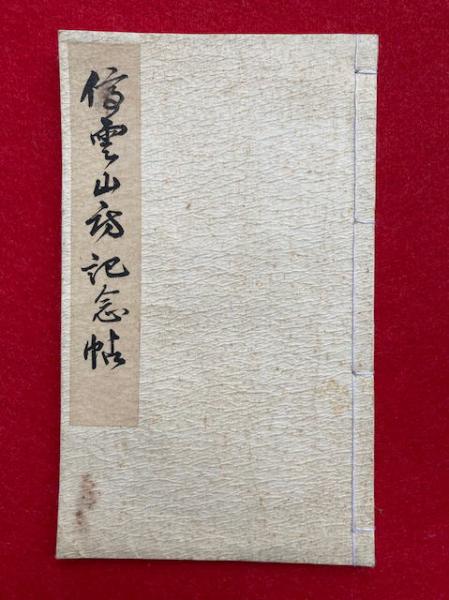 停雲山房記念帖